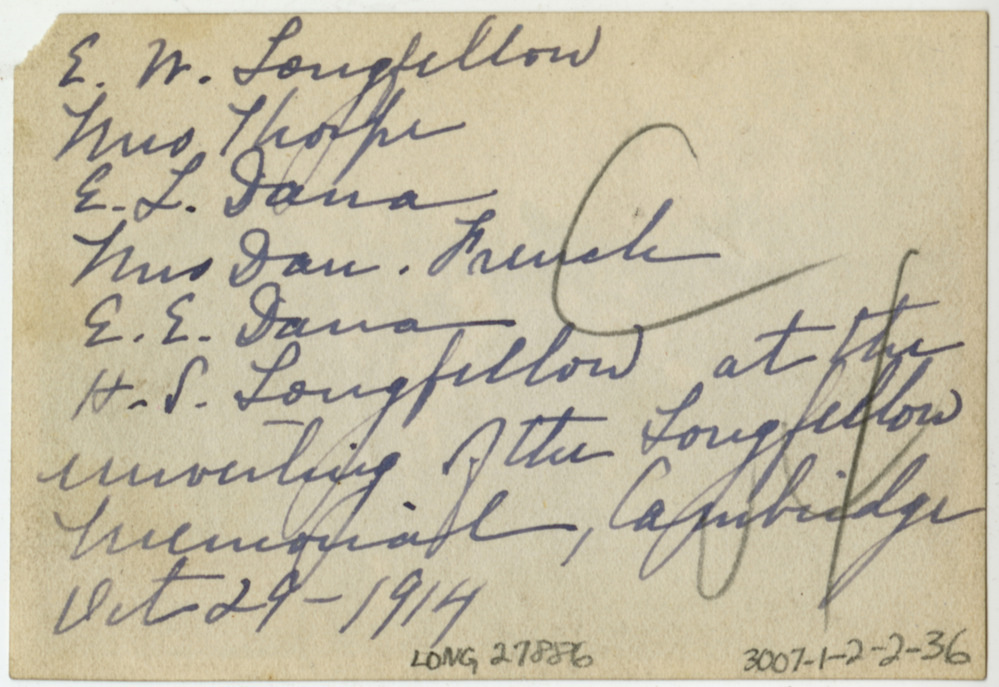 E. W. Longfellow
Mrs Thorpe
E. L. Dana
Mrs Dan. French
E. E. Dana
H. S. Longfellow at the
unveiling of the Longfellow
Memorial, Cambridge
Oct 29-1914
LONG 27886
3007-1-2-2-36